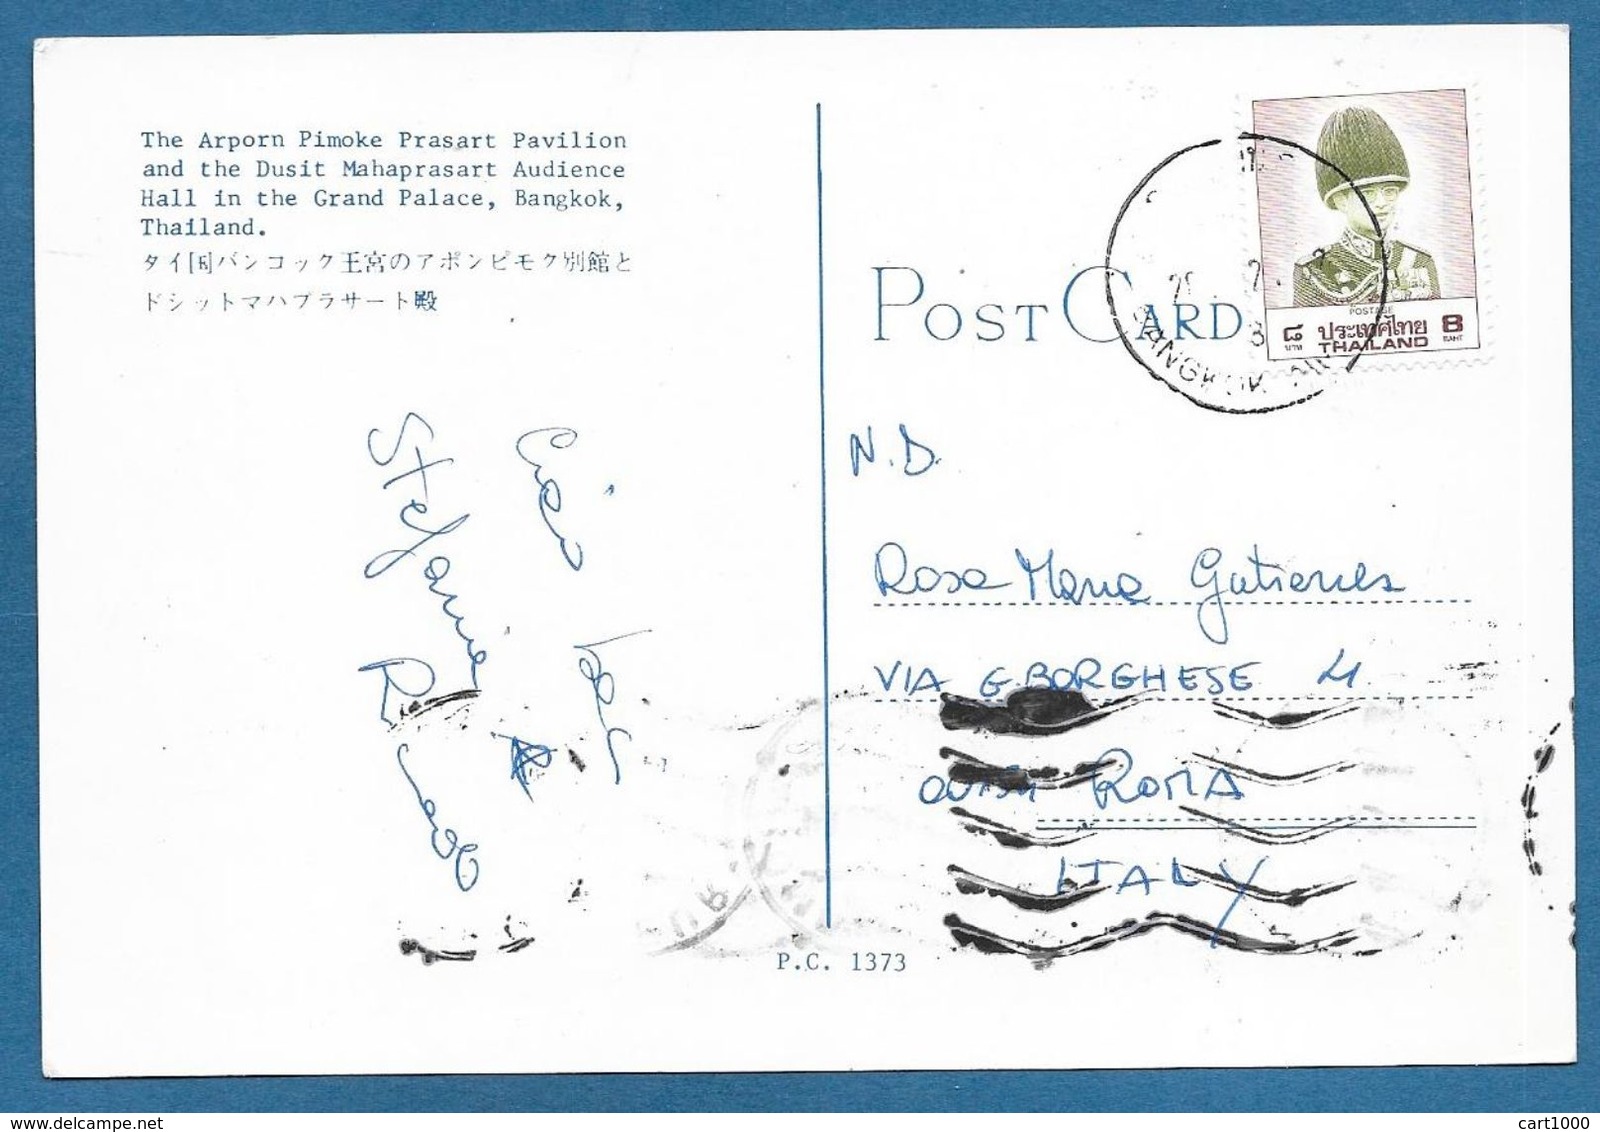 The Arporn Pimoke Prasart Pavilion
and the Dusit Mahaprasart Audience
Hall in the Grand Palace, Bangkok,
Thailand.
タイ国バンコック王宮のアポンピモク別館と
ドシットマハプラサート殿
Ciao
Stefania
POST CARD
BANGKOK
POSTAGE
๘ ประเทศไทย 8
บาท THAILAND BAHT
N.D.
Rosa Maria Gutierres
VIA G. BORGHESE 4
ROMA
ITALY
P.C. 1373
cart1000